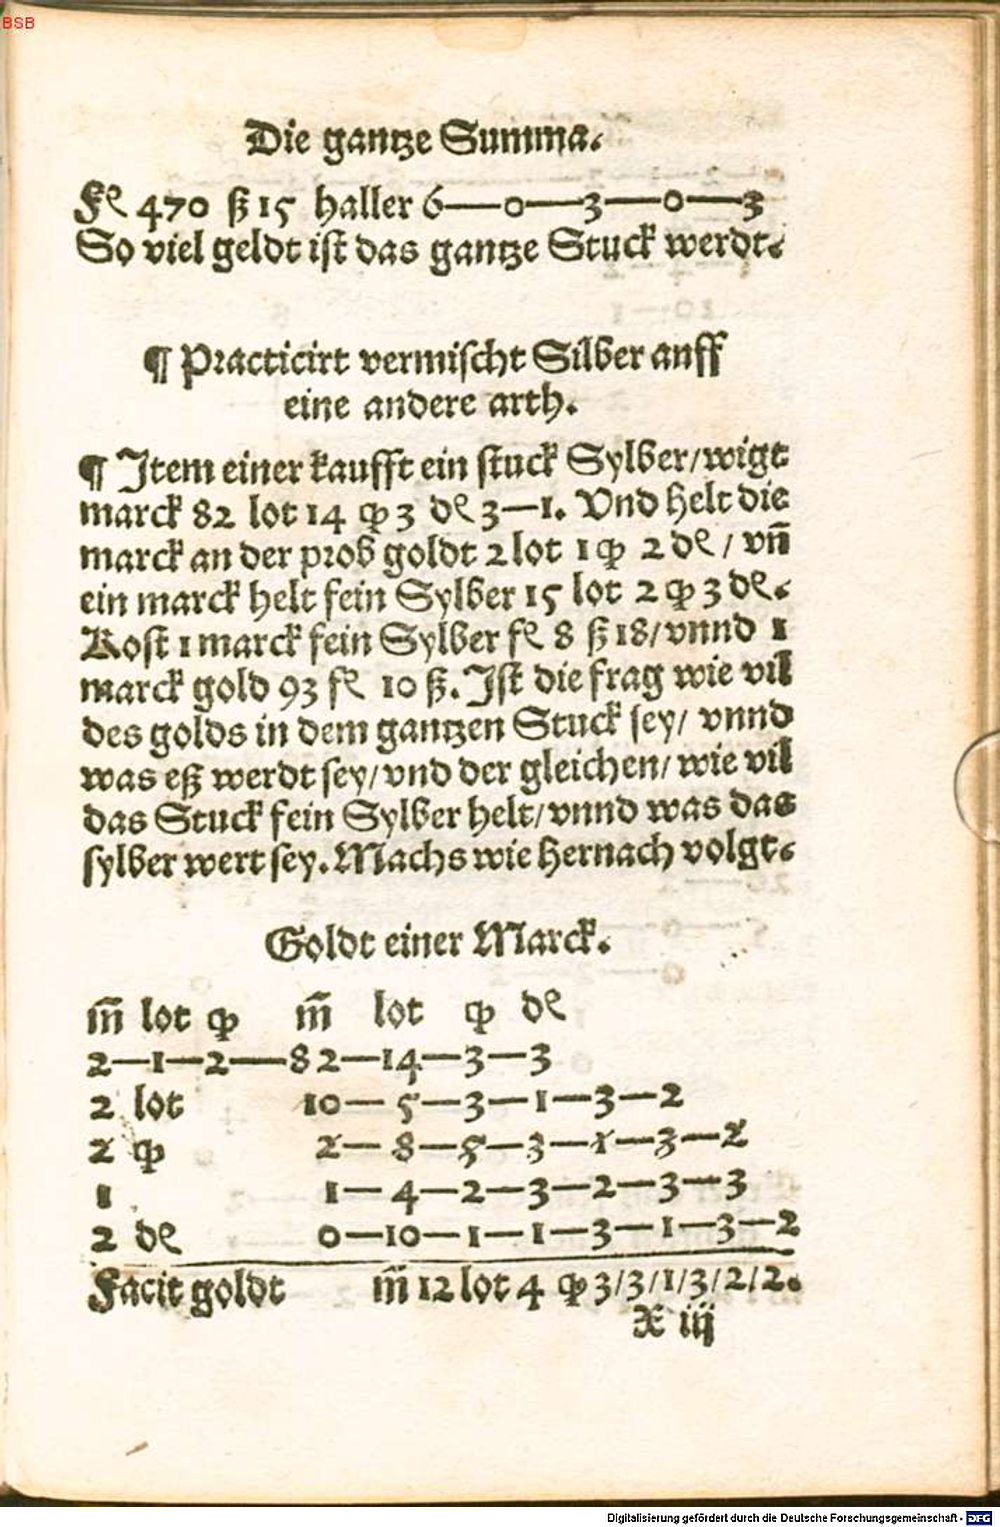 BSB
Die gantze Summa.
Fl 470 ß 15 haller 6—0—3—0—3
So viel geldt ist das gantze Stuck werdt.
¶ Practicirt vermischt Silber auff
eine andere arth.
¶ Item einer kaufft ein stuck Sylber/wigt
marck 82 lot 14 qp 3 dl 3—1. Vnd helt die
marck an der prob goldt 2 lot 1 qp 2 dl / vn̄
ein marck helt fein Sylber 15 lot 2 qp 3 dl.
Kost 1 marck fein Sylber fl 8 ß 18/vnnd 1
marck gold 93 fl 10 ß. Ist die frag wie vil
des golds in dem gantzen Stuck sey/ vnnd
was eß werdt sey/vnd der gleichen/wie vil
das Stuck fein Sylber helt/vnnd was das
sylber wert sey. Machs wie hernach volgt.
Goldt einer Marck.
m̄ lot qp m̄ lot qp dl
2—1—2—82—14—3—3
2 lot 10—5—3—1—3—2
2 qp 2—8—5—3—1—3—2
1 1—4—2—3—2—3—3
2 dl 0—10—1—1—3—1—3—2
Facit goldt m̄ 12 lot 4 qp 3/3/1/3/2/2.
X iij
Digitalisierung gefördert durch die Deutsche Forschungsgemeinschaft - DFG